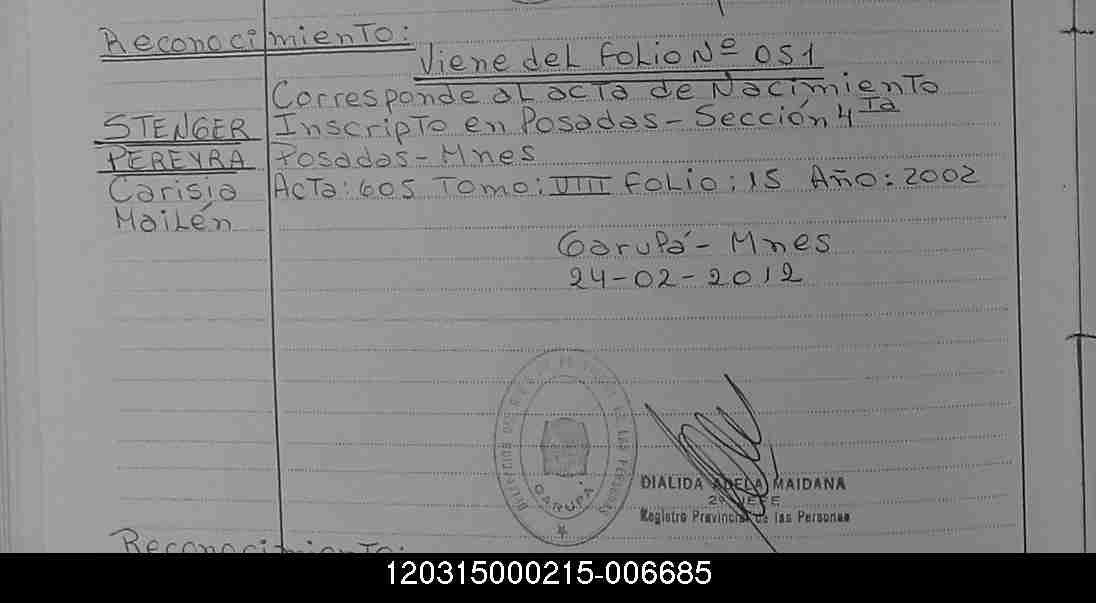 Reconocimiento:
Viene del folio Nº 051
Corresponde al acta de Nacimiento
STENGER Inscripto en Posadas - Sección 4ta
PEREYRA Posadas - Mnes
Carisia Acta: 605 Tomo: VIII folio: 15 Año: 2002
Mailén
Garupá - Mnes
24-02-2012
GARUPA
DIALIDA ADELA MAIDANA
2º JEFE
Registro Provincial de las Personas
Reconocimiento:
120315000215-006685